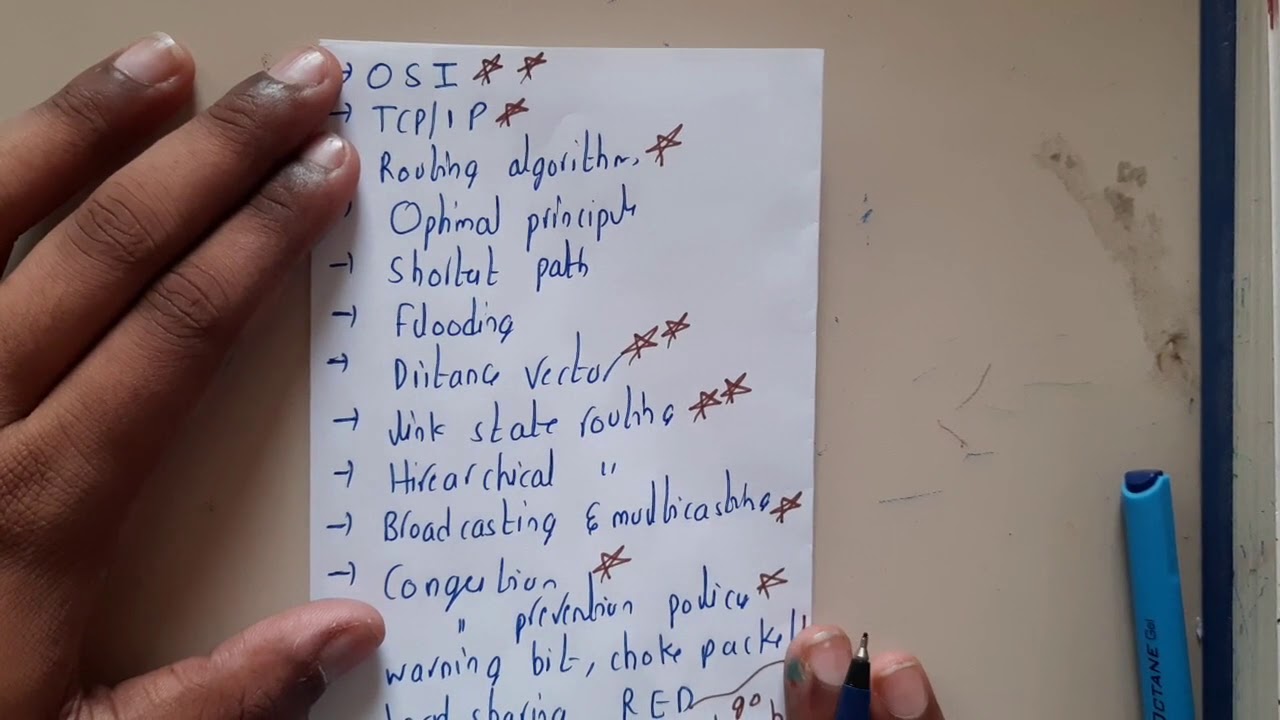 → OSI ☆ ☆
→ TCP/IP ☆
Routing algorithms ☆
Optimal principle
→ Shortest path
→ Flooding
→ Distance vector ☆☆
→ Link state routing ☆☆
→ Hirearchical "
→ Broadcasting & multicasting ☆
→ Congestion ☆
" prevention policy ☆
warning bit, choke packet
Load sharing RED go
OCTANE Gel